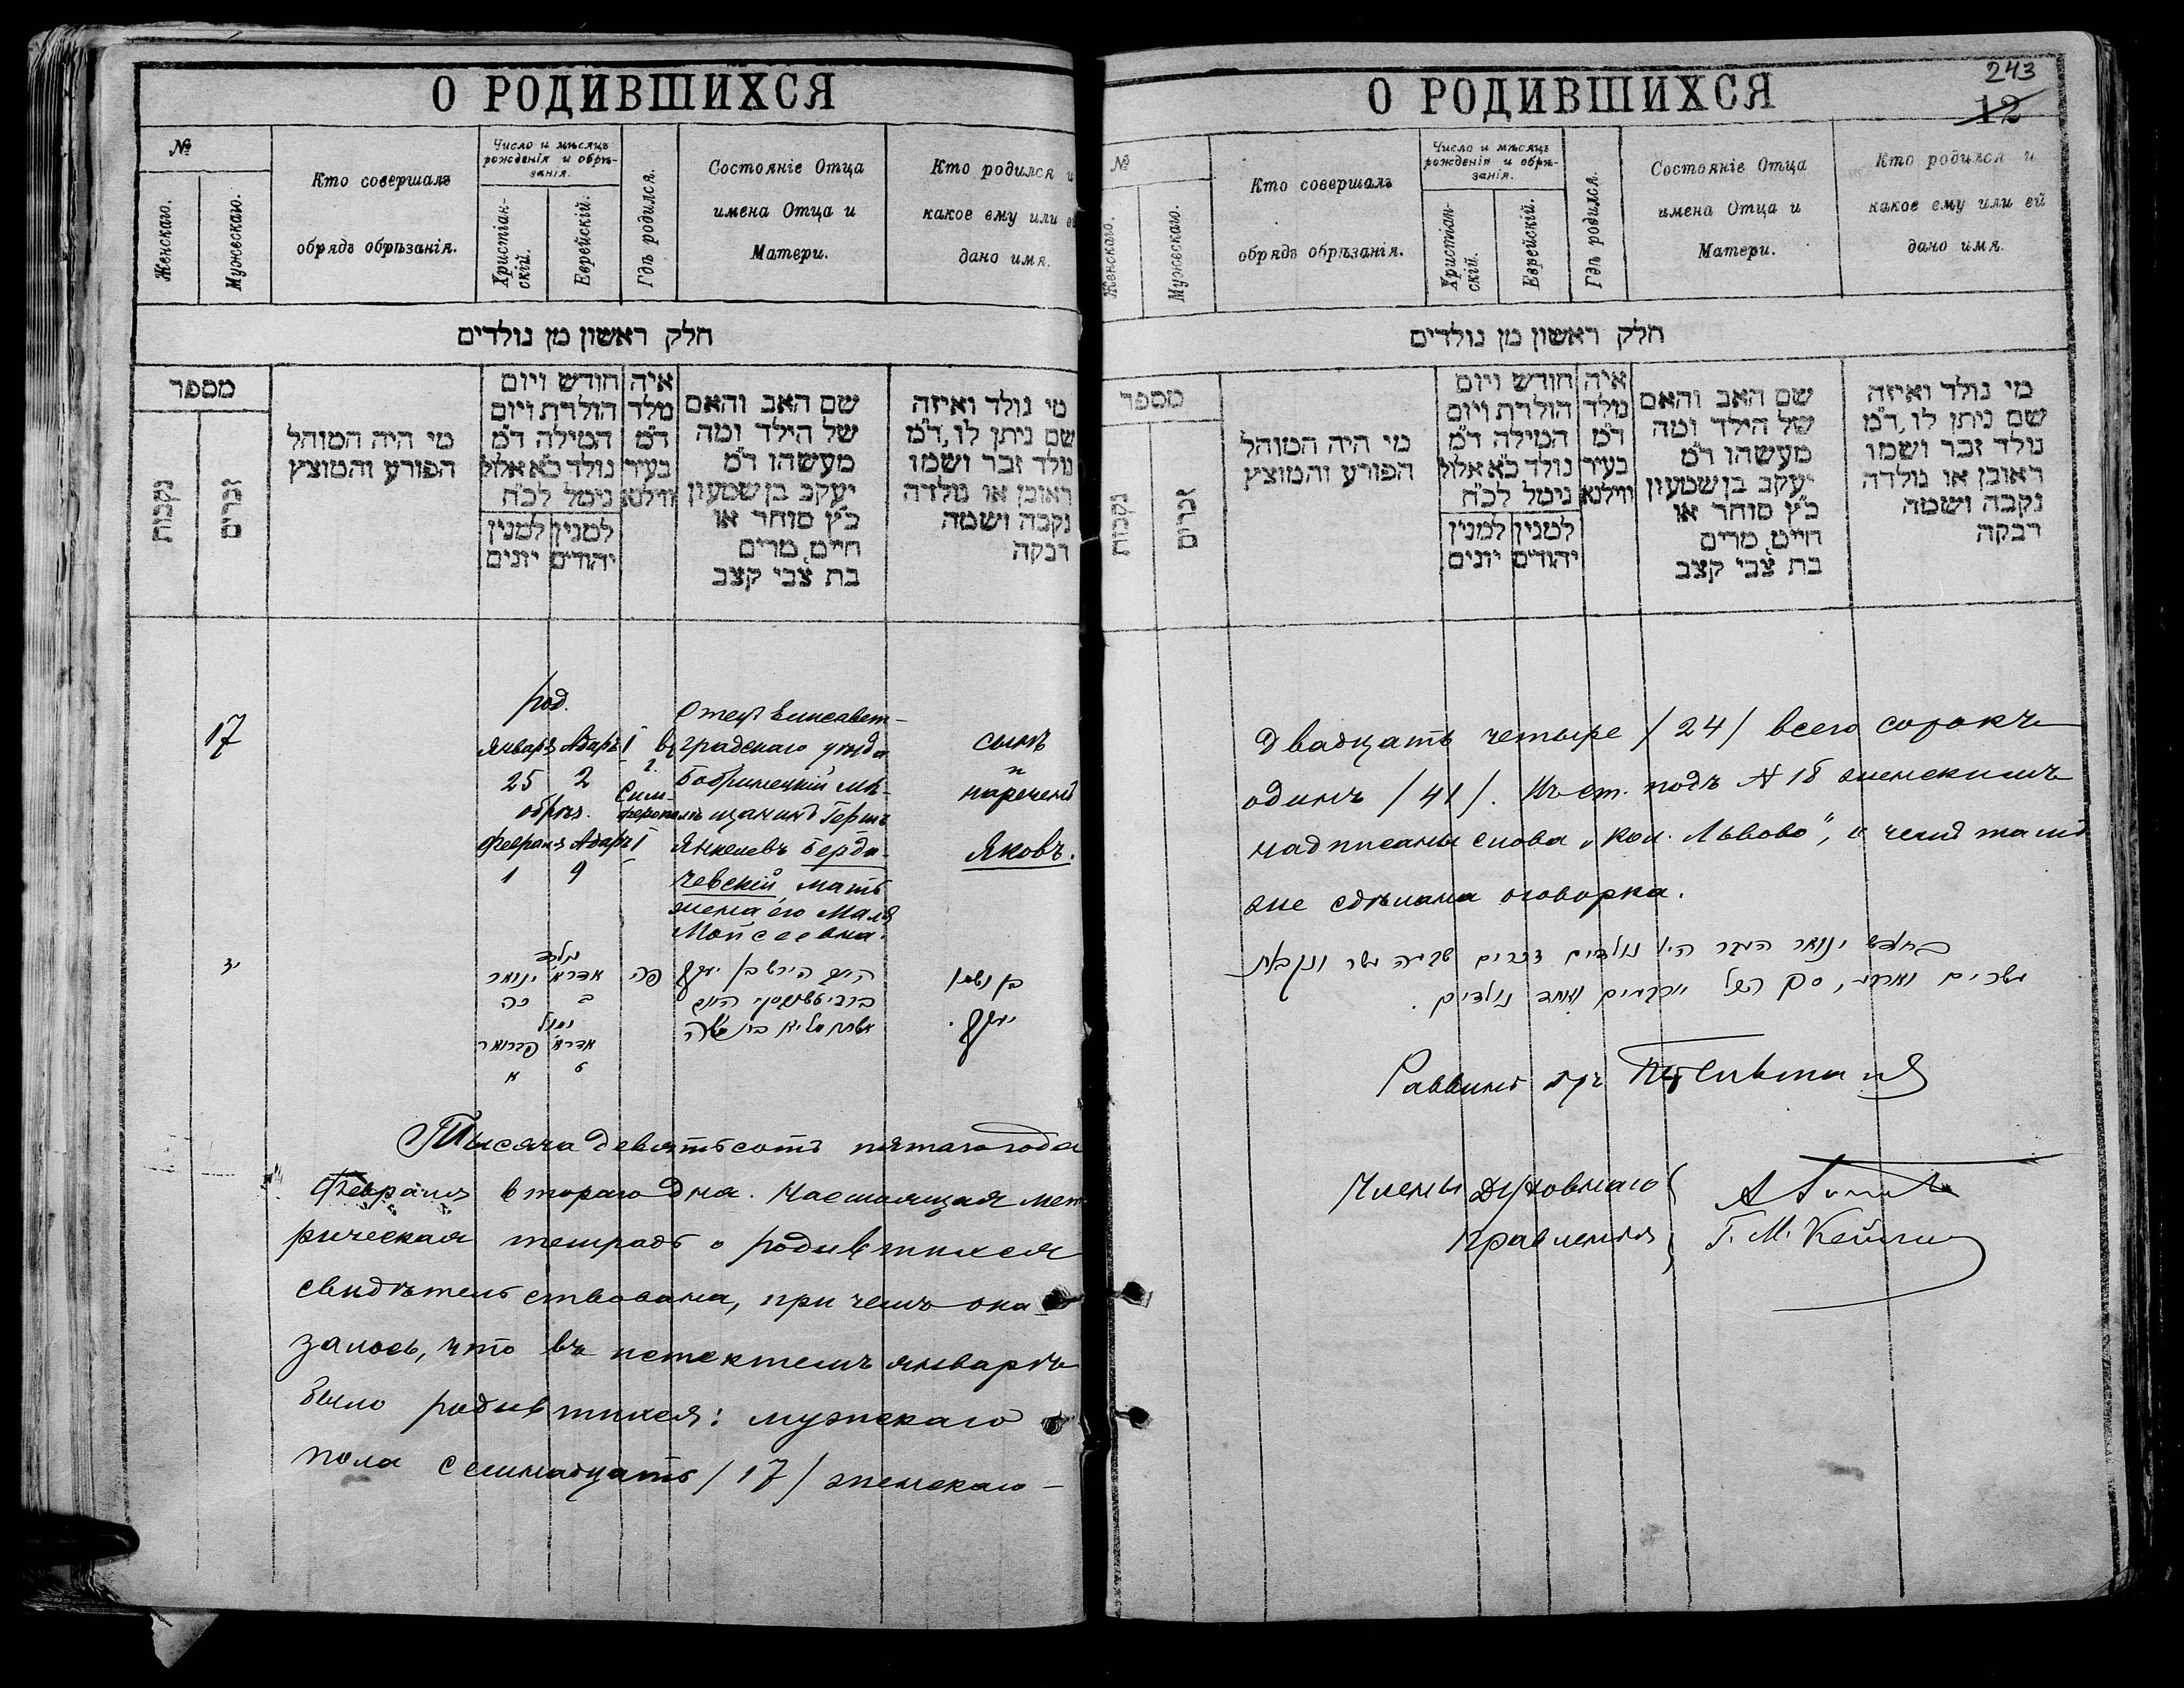 О РОДИВШИХСЯ
№
Женскаго.
Мужескаго.
Кто совершалъ
обрядъ обрѣзанія.
Число и мѣсяцъ
рожденія и обрѣ-
занія.
Христіан-
скій.
Еврейскій.
Гдѣ родился.
Состояніе Отца
имена Отца и
Матери.
Кто родился и
какое ему или ей
дано имя.
חלק ראשון מן נולדים
מספר
נקבות
זכרים
מי היה המוהל
הפורע והמוצץ
חודש ויום
הולדת ויום
המילה ד״מ
נולד כ״א אלול
נימל לכ״ח
למנין
יהודים
למנין
יונים
איה
מלד
ד״מ
בעיר
ווילנא
שם האב והאם
של הילד ומה
מעשהו ד״מ
יעקב בן שמעון
כ״ץ סוחר או
חייט, מרים
בת צבי קצב
מי נולד ואיזה
שם ניתן לו, ד״מ
נולד זכר ושמו
ראובן או נולדה
נקבה ושמה
רבקה
17
род.
Январь Адаръ I
25 2
обрѣз.
Февраля Адаръ I
1 9
въ г.
Сим-
ферополь
Отецъ Елисавет-
градскаго уѣзда
Бобринецкій мѣ-
щанинъ Гершъ
ЯнкелевъБерди-
чевскій, мать
жена его Маля
Мойсеевна.
сынъ
и
нареченъ
Яковъ.
נולד
אדר א׳ ינואר
ב כה
נימול
אדר א׳ פברואר
ט א
פה
בן ושמו
יעקב.
Тысяча девятьсотъ пятаго года
Февраля втораго дня. Настоящая мет-
рическая тетрадь о родившихся
свидѣтельствована, при чемъ ока-
залось, что въ истекшемъ январѣ
было родившихся: мужскаго
пола семнадцать /17/ женскаго –
О РОДИВШИХСЯ
243
12
№
Женскаго.
Мужескаго.
Кто совершалъ
обрядъ обрѣзанія.
Число и мѣсяцъ
рожденія и обрѣ-
занія.
Христіан-
скій.
Еврейскій.
Гдѣ родился.
Состояніе Отца
имена Отца и
Матери.
Кто родился и
какое ему или ей
дано имя.
חלק ראשון מן נולדים
מספר
נקבות
זכרים
מי היה המוהל
הפורע והמוצץ
חודש ויום
הולדת ויום
המילה ד״מ
נולד כ״א אלול
נימל לכ״ח
למנין
יהודים
למנין
יונים
איה
נולד
ד״מ
בעיר
ווילנא
שם האב והאם
של הילד ומה
מעשהו ד״מ
יעקב בן שמעון
כ״ץ סוחר או
חייט, מרים
בת צבי קצב
מי נולד ואיזה
שם ניתן לו, ד״מ
נולד זכר ושמו
ראובן או נולדה
נקבה ושמה
רבקה
двадцать четыре /24/ всего сорокъ
одинъ /41/. Въ ст. подъ № 18 женскимъ
надписаны слова „кол. Львово", о чемъ тамъ
же сдѣлана оговорка.
Раввинъ
Члены Духовнаго
Правленія
Г. М.